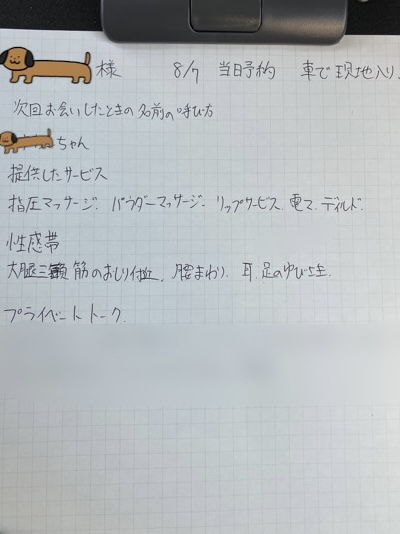 様 8/7 当日予約 車で現地入り
次回お会いしたときの名前の呼び方
ちゃん
提供したサービス
指圧マッサージ. パウダーマッサージ. リップサービス. 電マ. ディルド.
性感帯
大腿三頭筋のおしり付近. 腰まわり. 耳. 足のゆび5本.
プライベートトーク.